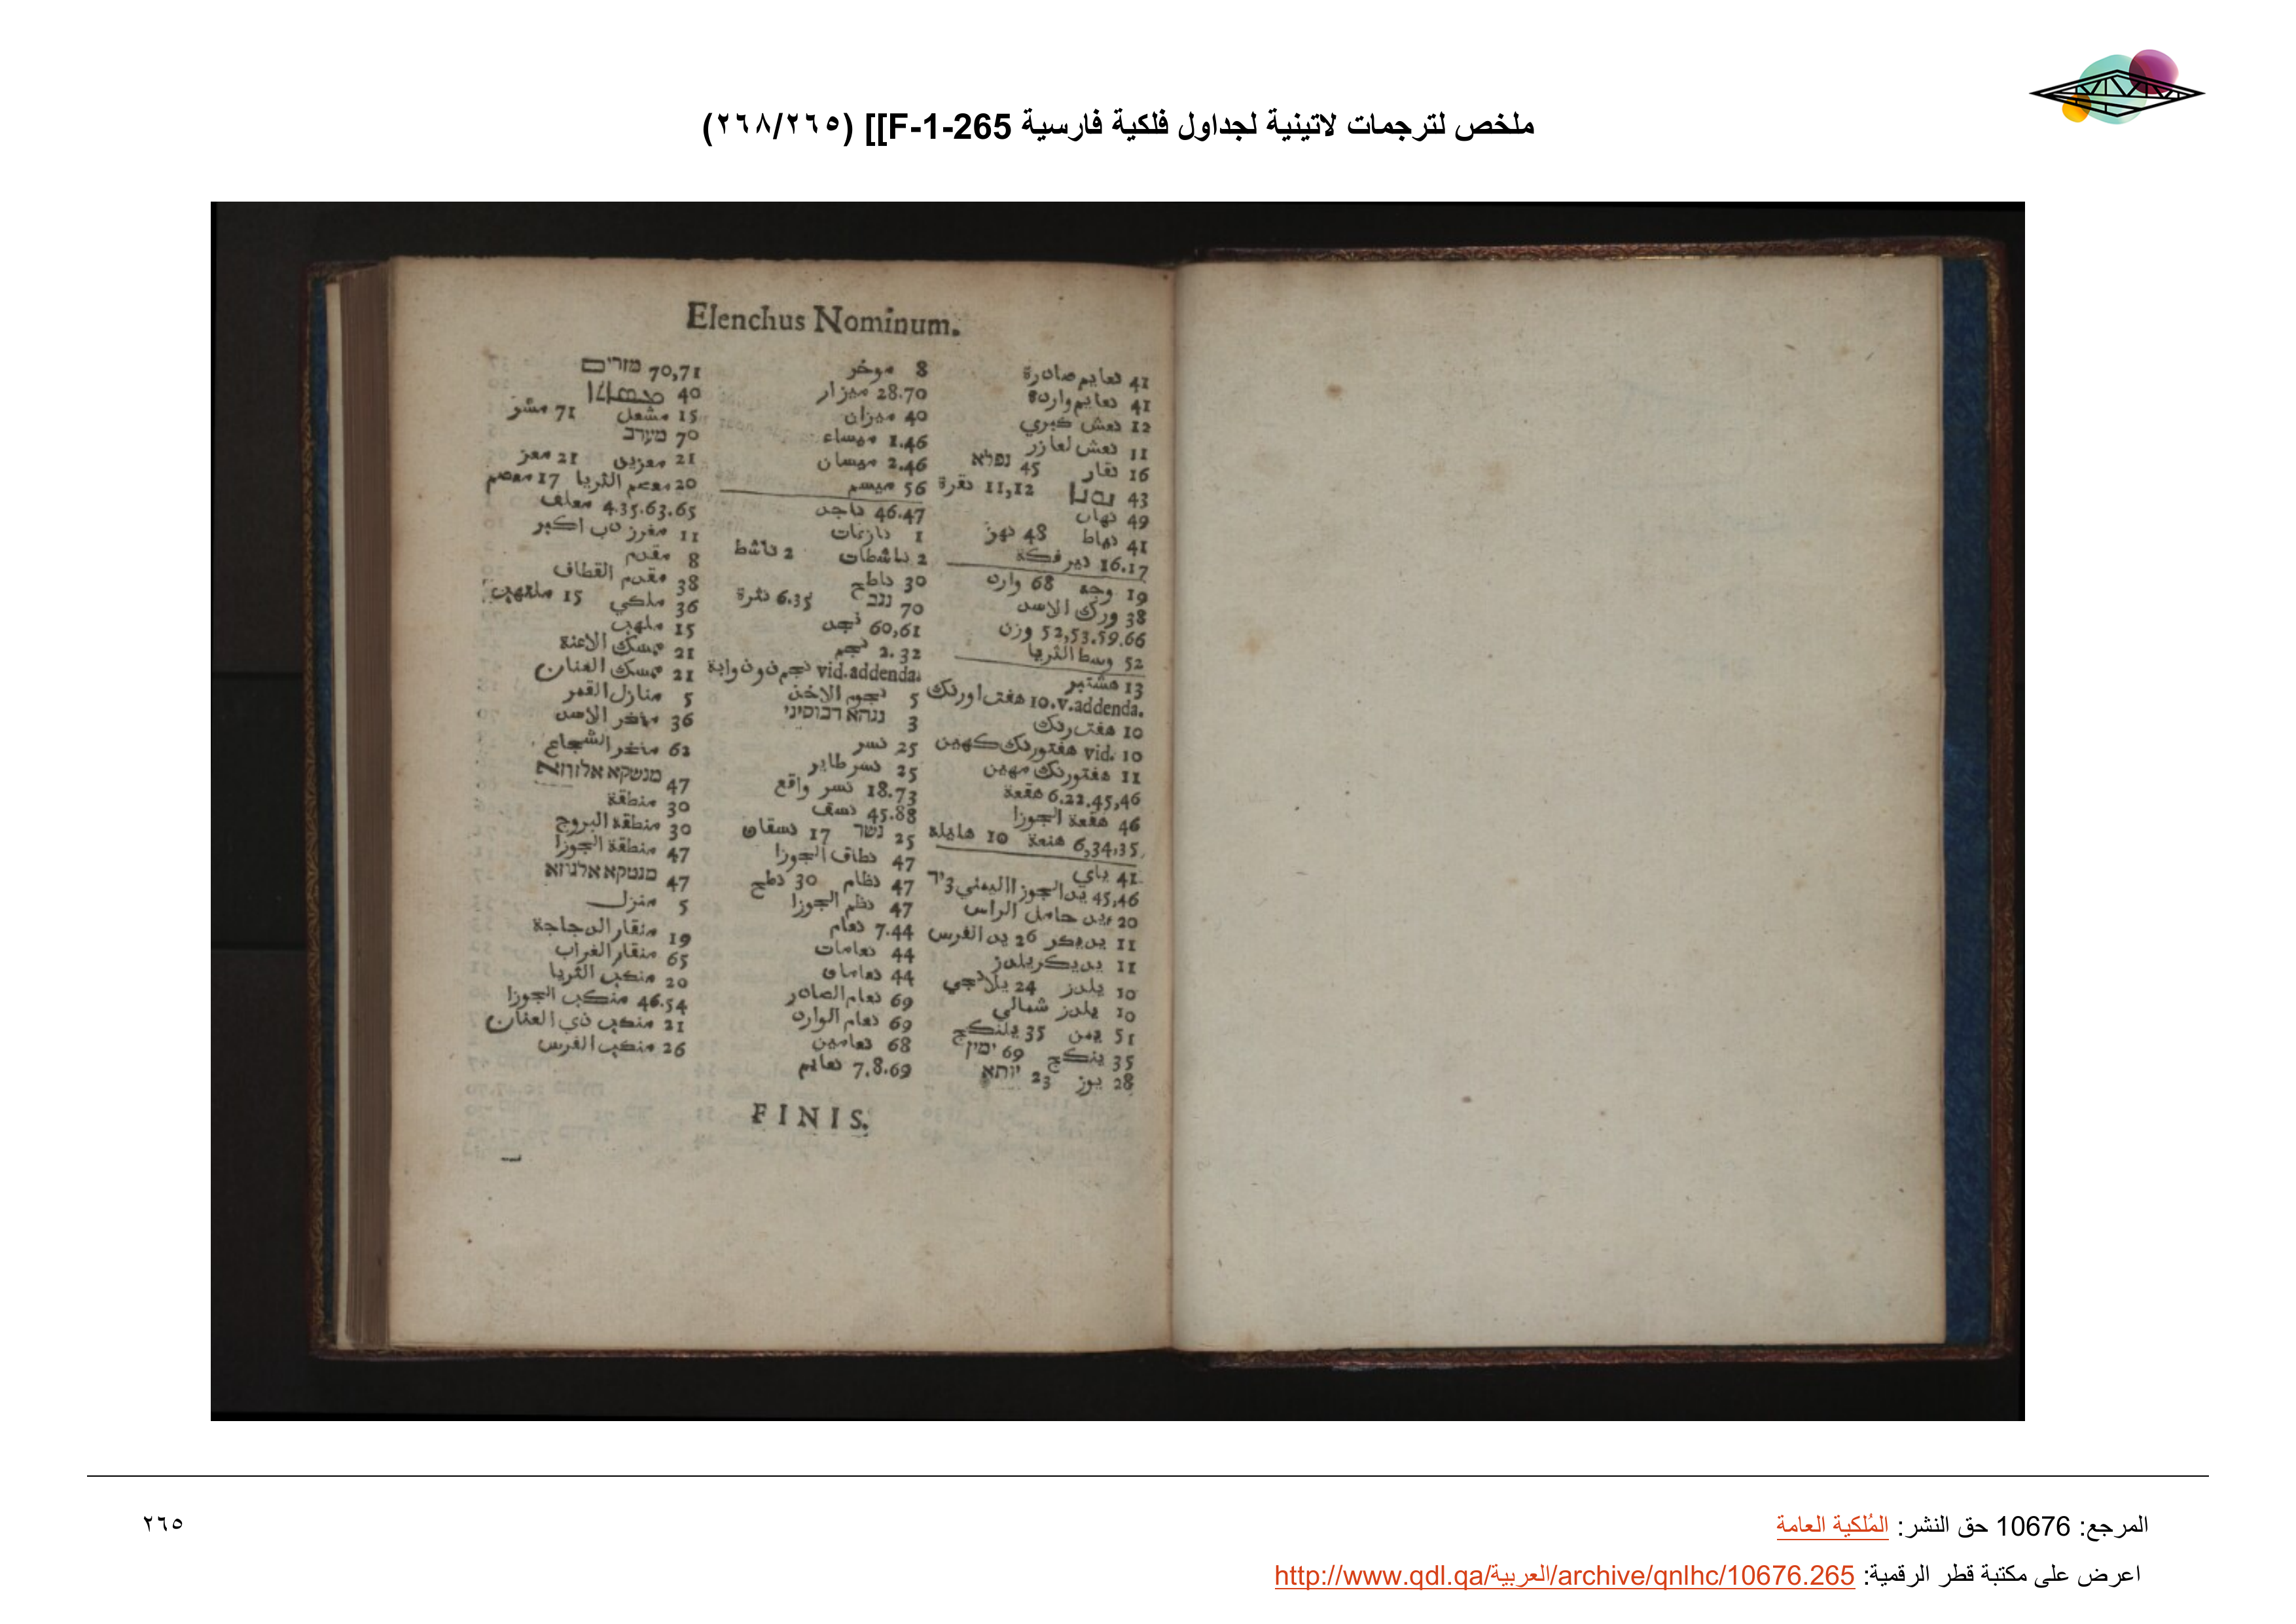 ملخص لترجمات لاتينية لجداول فلكية فارسية [[F-1-265 (٢٦٨/٢٦٥)
Elenchus Nominum.
70,71 מזרים
40
15 مشعل 71 مشز
70 מערב
21 معزيق 21 معز
20 معصم الثريا 17 معصم
4.35.63.65 معلف
11 مغرز ذب اكبر
8 مقدم
38 مقدم القطاف
36 ملكي 15 ملتهب
15 ملهب
21 ممسك الاعنة
21 ممسك العنان
5 منازل القمر
36 منخر الاسد
62 منخر الشجاع
47
30 منطقة
30 منطقة البروج
47 منطقة الجوزا
47 מנטקא אלגוזא
5 منزل
19 منقار الدجاجة
65 منقار الغراب
20 منكب الثريا
46.54 منكب الجوزا
21 منكب ذي العنان
26 منكب الفرس
8 موخر
28.70 ميزار
40 ميزان
1.46 ميساء
2.46 ميسان
56 ميسم
46.47 ناجد
1 نازعات
2 ناشطات 2 ناشط
30 ناطح
70 נגב 6.35 نثرة
60,61 نجد
2.32 نجم
vid.addenda. نجم ذو ذوابة
5 نجوم الاخذ
3
25 نسر
25 نسر طاير
18.73 نسر واقع
45.88 نسف
25 נשר 17 نسقان
47 نطاق الجوزا
47 نظام 30 نطح
47 نظم الجوزا
7.44 نعام
44 نعامات
44 نعامان
69 نعام الصادر
69 نعام الوارد
68 نعامين
7.8.69 نعايم
41 نعايم صادرة
41 نعايم واردة
12 نعش كبري
11 نعش لعازر
16 نقار 45 נפלא
43 11,12 نقرة
49 نهال
41 نياط 48 نهز
16.17 نير فكة
19 وجه 68 وارد
38 ورك الاسد
52,53.59.66 وزن
52 وسط الثريا
13 هشتبر
10.v.addenda. هفت اورنك
10 هفت رنك
vid. 10 هفتورنك كهين
11 هفتورنك مهين
6.22.45,46 هقعة
46 هقعة الجوزا
6,34,35. هنعة 10 هامله
41. ياي
45,46 يد الجوزا اليمني 3 יד
20 يد حامل الراس
11 يديكر 26 يد الفرس
11 يديكريلدز
10 يلدز 24 يلانجي
10 يلدز شمالي
51 يمن 35 يلنكج
35 ينكج 69 ימין
28 يوز 23 יותא
FINIS.
المرجع: 10676 حق النشر: المُلكية العامة
٢٦٥
اعرض على مكتبة قطر الرقمية: http://www.qdl.qa/العربية/archive/qnlhc/10676.265